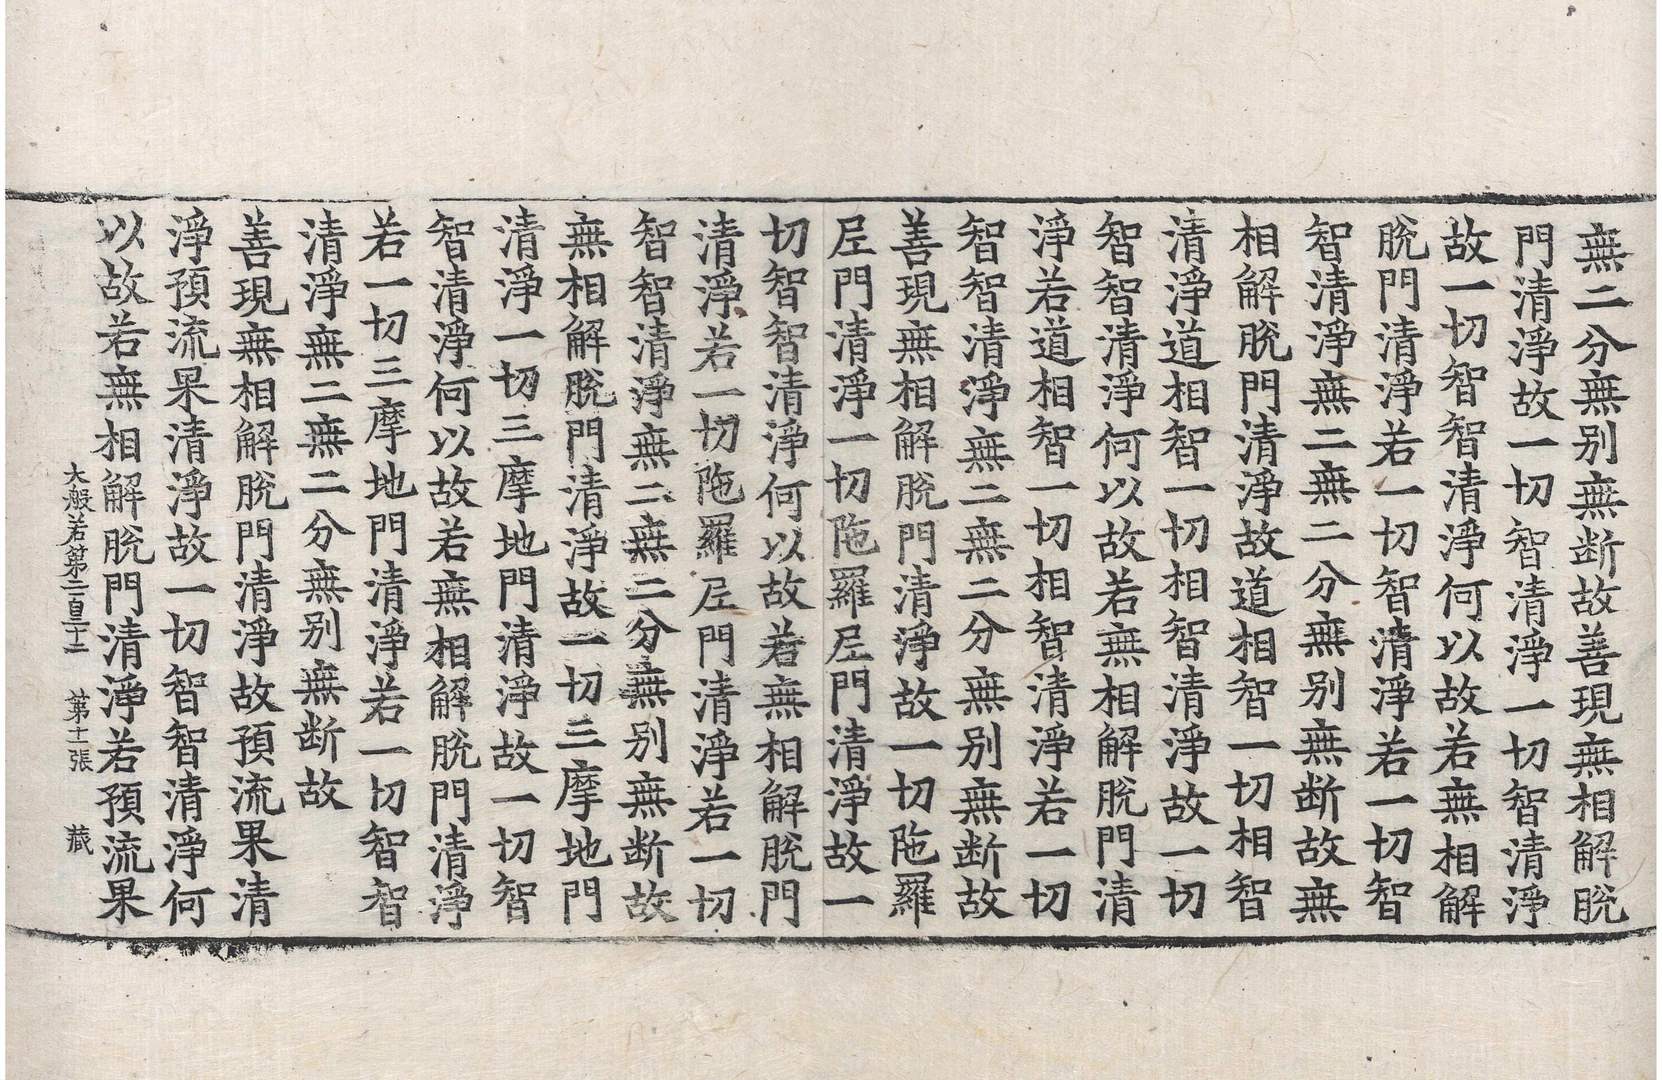 無二分無别無断故善現無相解脫
門清淨故一切智清淨一切智清淨
故一切智智清淨何以故若無相解
脫門清淨若一切智清淨若一切智
智清淨無二無二分無别無断故無
相解脫門清淨故道相智一切相智
清淨道相智一切相智清淨故一切
智智清淨何以故若無相解脫門清
淨若道相智一切相智清淨若一切
智智清淨無二無二分無别無断故
善現無相解脫門清淨故一切陁羅
𡰱門清淨一切陁羅𡰱門清淨故一
切智智清淨何以故若無相解脫門
清淨若一切陁羅𡰱門清淨若一切
智智清淨無二無二分無别無断故
無相解脫門清淨故一切三摩地門
清淨一切三摩地門清淨故一切智
智清淨何以故若無相解脫門清淨
若一切三摩地門清淨若一切智智
清淨無二無二分無别無断故
善現無相解脫門清淨故預流果清
淨預流果清淨故一切智智清淨何
以故若無相解脫門清淨若預流果
大般若第二百三十二 第十一張 藏